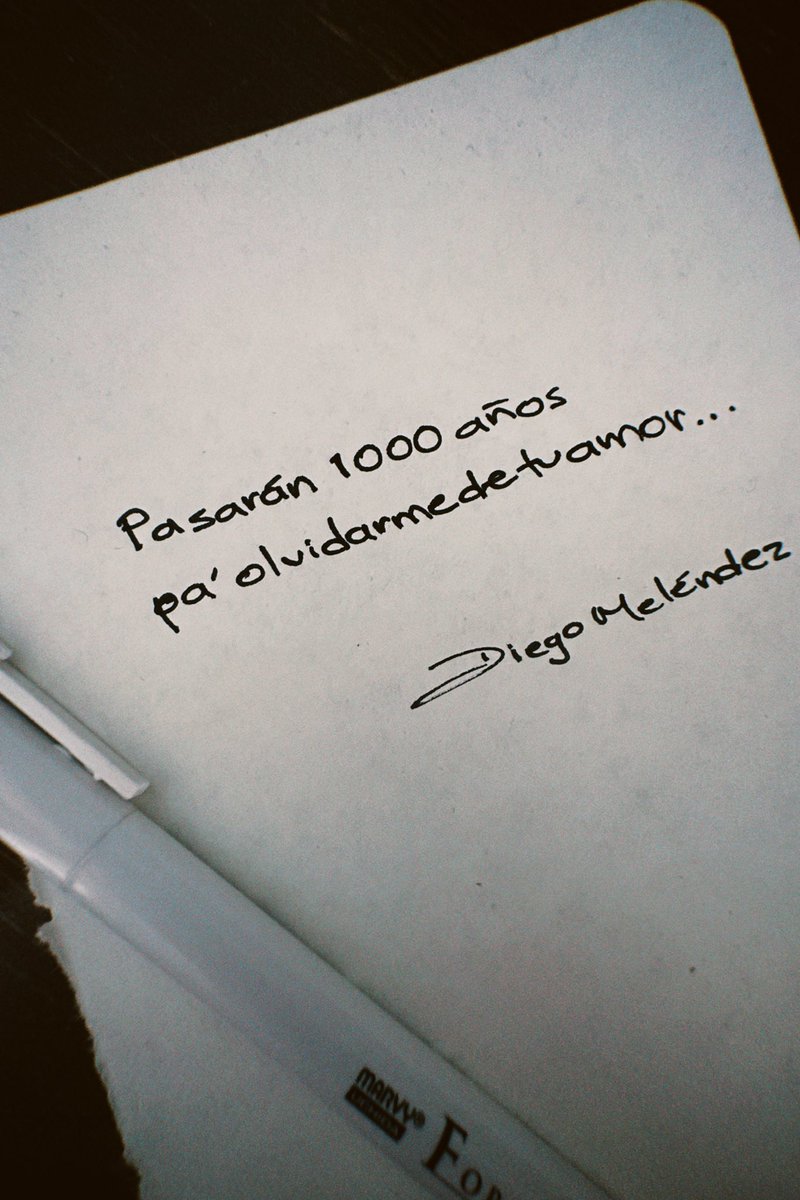 Pasarán 1000 años
pa' olvidarme de tu amor...
Diego Meléndez
MARVY®